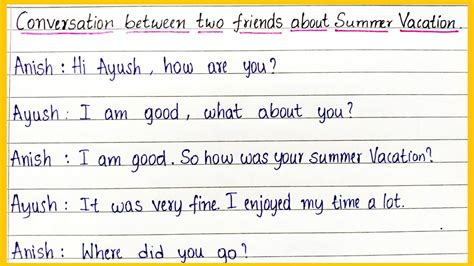 Conversation between two friends about Summer Vacation.
Anish : Hi Ayush, how are you?
Ayush : I am good, what about you?
Anish : I am good. So how was your summer Vacation?
Ayush : It was very fine. I enjoyed my time a lot.
Anish : Where did you go?